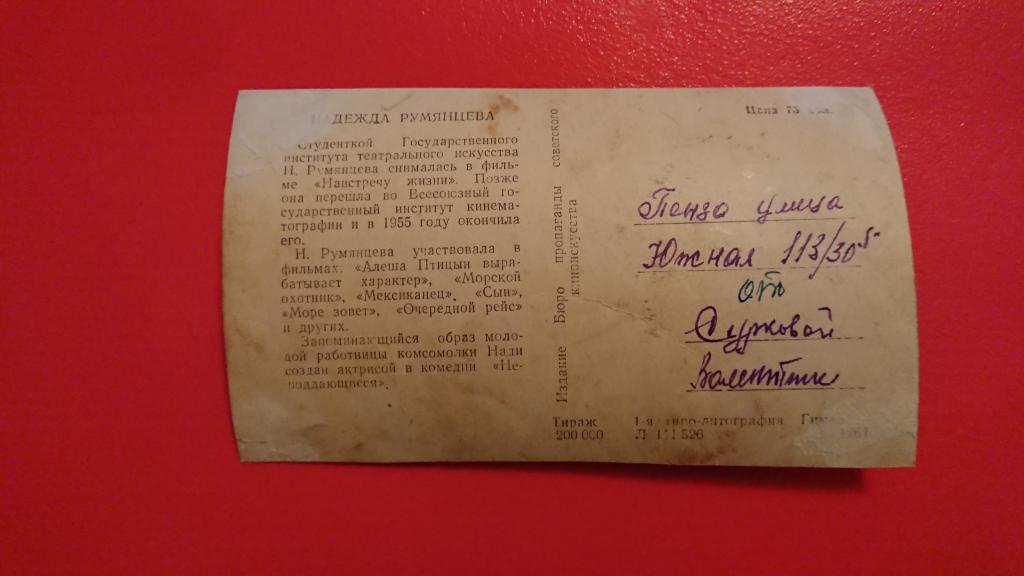 НАДЕЖДА РУМЯНЦЕВА
Студенткой Государственного
института театрального искусства
Н. Румянцева снималась в филь-
ме «Навстречу жизни». Позже
она перешла во Всесоюзный го-
сударственный институт кинема-
тографии и в 1955 году окончила
его.
Н. Румянцева участвовала в
фильмах: «Алеша Птицын выра-
батывает характер», «Морской
охотник», «Мексиканец», «Сын»,
«Море зовет», «Очередной рейс»
и других.
Запоминающийся образ моло-
дой работницы комсомолки Нади
создан актрисой в комедии «Не-
поддающиеся».
Издание Бюро пропаганды советского
киноискусства
Цена 75 коп.
Пенза улица
Южная 113/30
от
Сурковой
Валентины
Тираж
200 000
1-я типо-литография
Л 111526